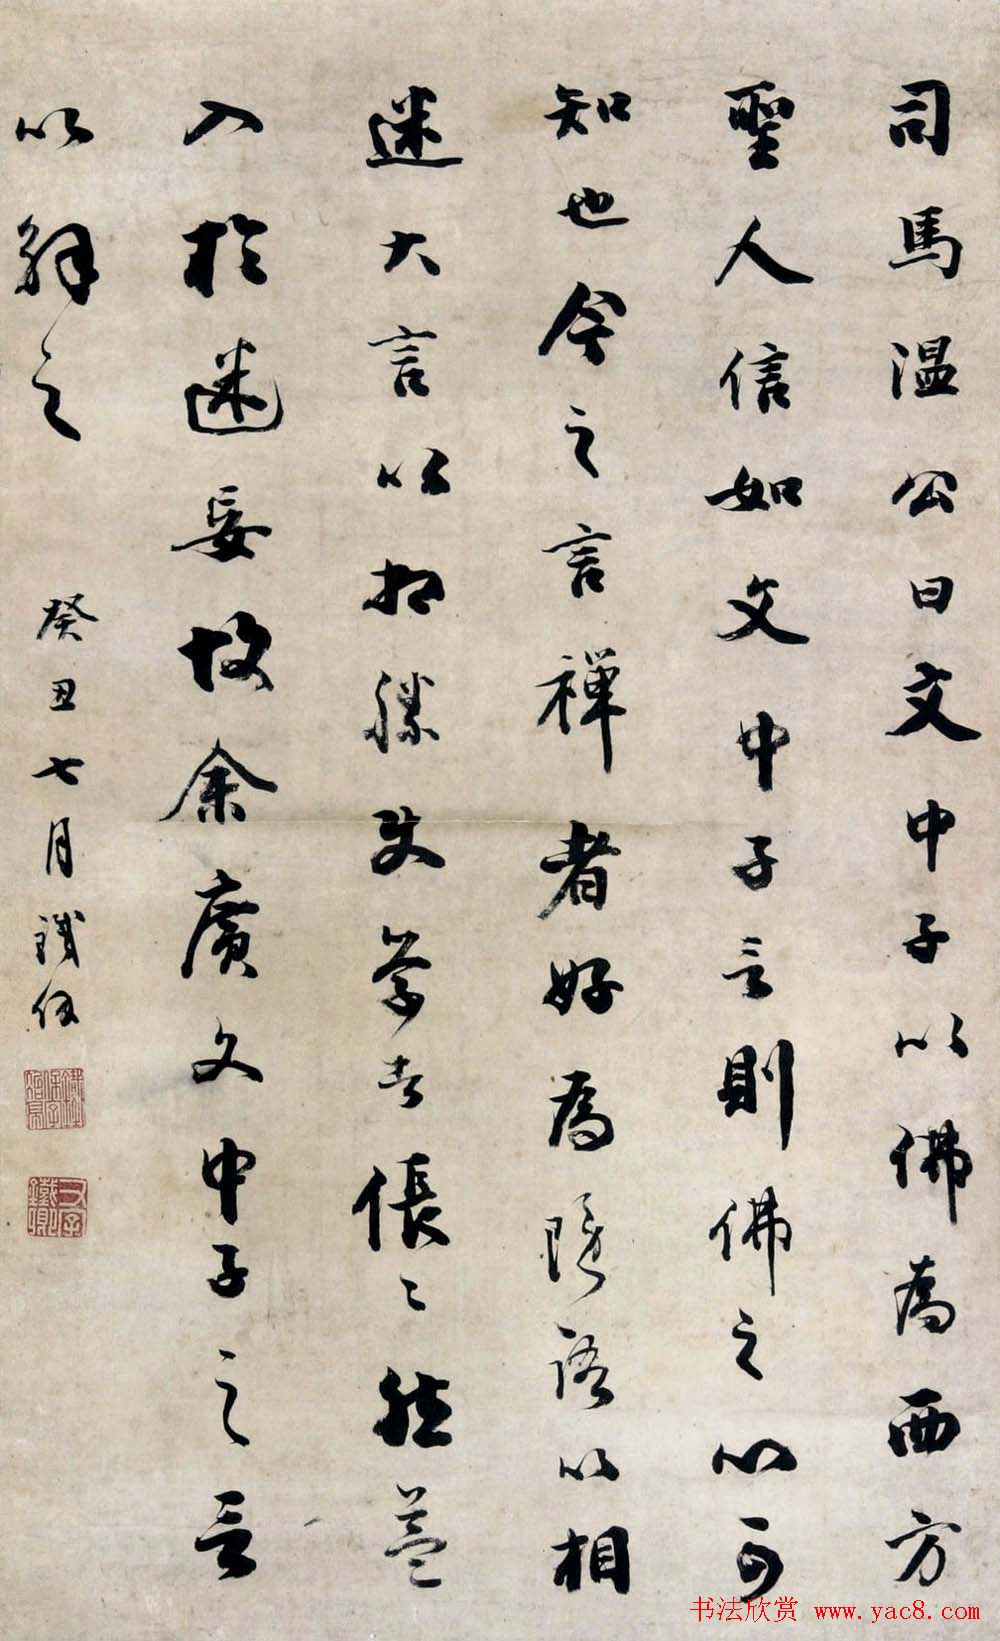 司馬温公曰文中子以佛為西方
聖人信如文中子言則佛之心可
知也今之言禅者好為隱語以相
迷大言以相勝使學者倀〻然益
入於迷妄故余廣文中子之言
以解之
癸丑七月鐵保
書法欣赏 www.yac8.com